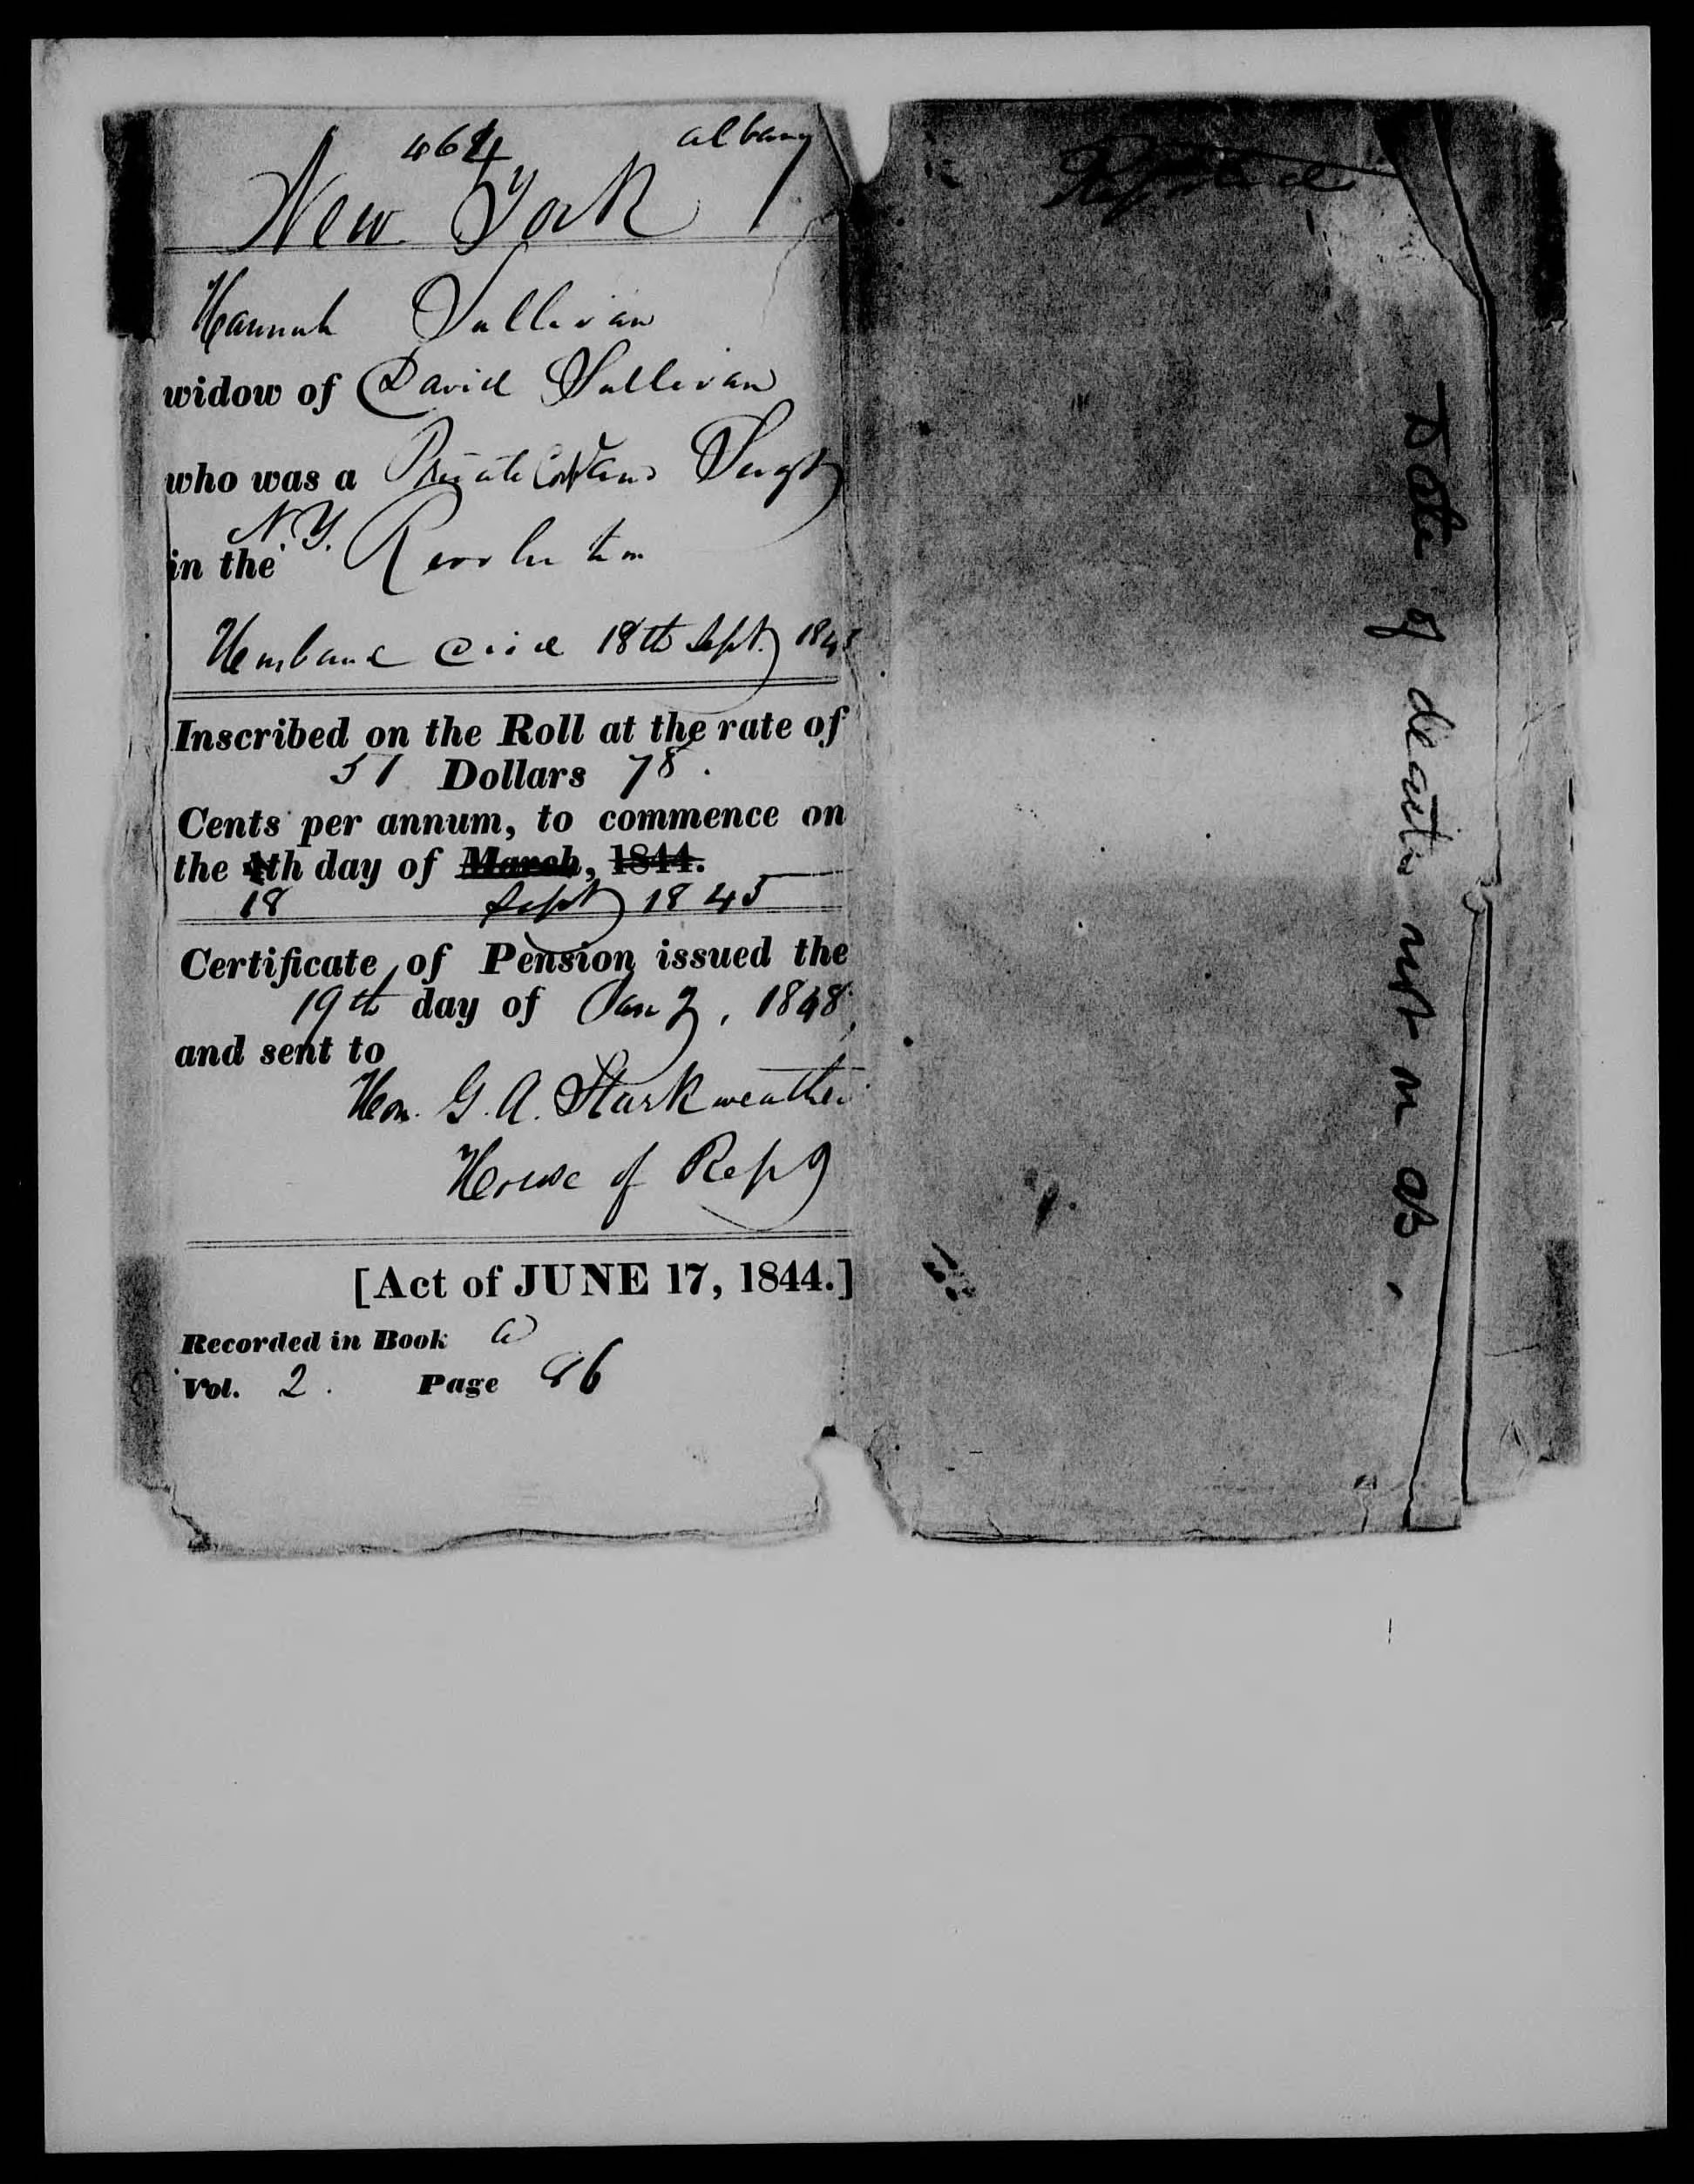 4624 albany
New York
Hannah Sullivan
widow of David Sullivan
who was a Private Corp and Sergt
N.Y.
in the Revolution
Husband died 18th Sept. 1845
Inscribed on the Roll at the rate of
51 Dollars 78.
Cents per annum, to commence on
the 4th day of March, 1844.
18 Sept 1845
Certificate of Pension issued the
19th day of Jany, 1848,
and sent to
Hon. G. A. Starkweather
House of Reps
[Act of JUNE 17, 1844.]
Recorded in Book a
Vol. 2. Page 86
Date of death not on